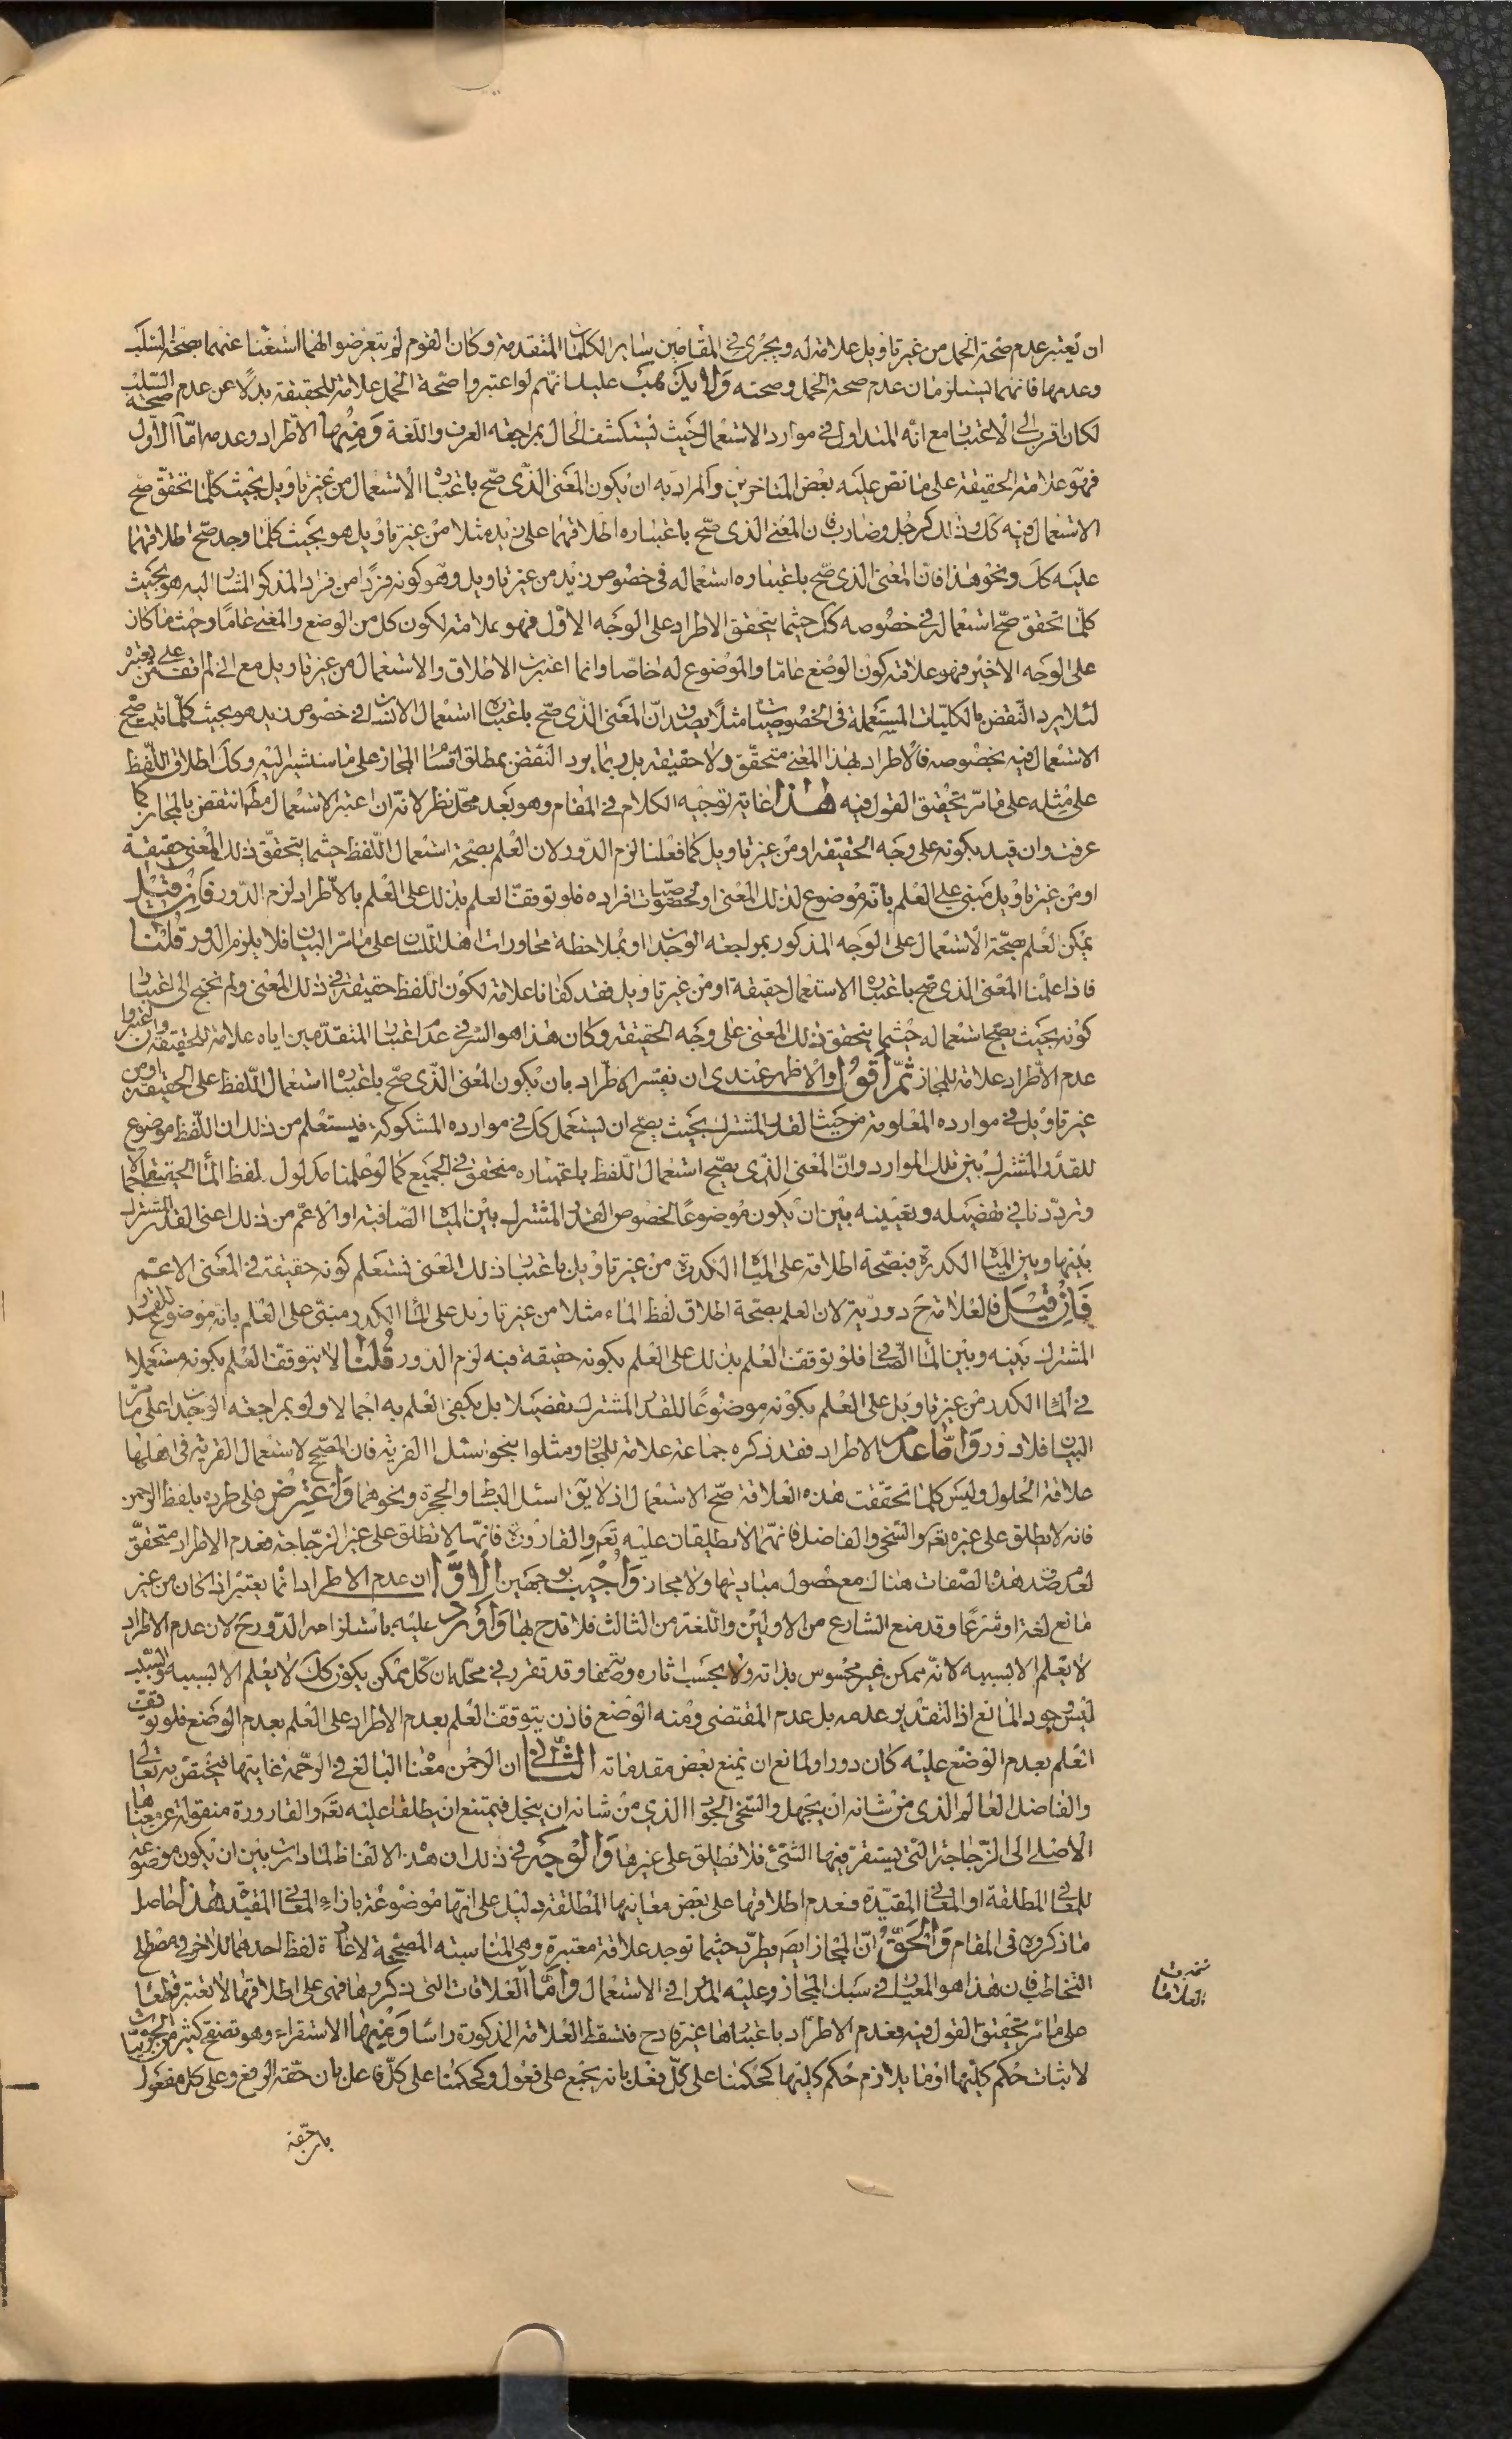 ان يعتبر عدم صحة الحمل من غير تاويل علامة له ويجرى فى المقامين ساير الكلمات المتقدمة وكان القوم لم يتعرضوا لهما استغناء عنهما بصحة السلب
وعدمها فانهما يستلزمان عدم صحة الحمل وصحته ولا يذهب عليك انهم لو اعتبروا صحة الحمل علامة للحقيقة بدلا عن عدم صحة السلب
لكان اقرب الى الاعتبار مع انه المتداول فى موارد الاستعمال حيث يستكشف الحال بمراجعة العرف واللغة ومنها الاطراد وعدمه اما الاول
فهو علامة الحقيقة على ما نص عليه بعض المتاخرين والمراد به ان يكون المعنى الذى صح باعتباره الاستعمال من غير تاويل بحيث كلما تحقق صح
الاستعمال فيه كك وذلك كرجل وضارب فان المعنى الذى صح باعتباره اطلاقهما على زيد مثلا من غير تاويل هو بحيث كلما وجد صح اطلاقهما
عليه كك ونحو هذا فان المعنى الذى صح باعتباره استعماله فى خصوص زيد من غير تاويل وهو كونه فردا من افراد المذكر المشار اليه هو بحيث
كلما تحقق صح استعماله فى خصوصه كك حيثما يتحقق الاطراد على الوجه الاول فهو علامة لكون كل من الوضع والمعنى عاما وحيثما كان
على الوجه الاخير فهو علامة كون الوضع عاما والموضوع له خاصا وانما اعتبرت الاطلاق والاستعمال من غير تاويل مع انى لم اقف على من يعتبره
لئلا يرد النقض بالكليات المستعملة فى الخصوصيات مثلا يصدق ان المعنى الذى صح باعتباره استعمال الانسان فى خصوص زيد هو بحيث كلما ثبت صح
الاستعمال فيه بخصوصه فالاطراد بهذا المعنى متحقق ولا حقيقة بل وبما يرد النقض بمطلق اقسام المجاز على ما سنشير اليه وكك اطلاق اللفظ
على مثله على ما مر تحقيق القول فيه هذا غاية توجيه الكلام فى المقام وهو بعد محل نظر لانه ان اعتبر الاستعمال مط انتقض بالمجاز كما
عرفت وان قيد بكونه على وجه الحقيقة او من غير تاويل كما فعلنا لزم الدور لان العلم بصحة استعمال اللفظ حيثما يتحقق ذلك المعنى حقيقة
او من غير تاويل مبنى على العلم بانه موضوع لذلك المعنى او لخصوصيات افراده فلو توقف العلم بذلك على العلم بالاطراد لزم الدور فان قيل
يمكن العلم بصحة الاستعمال على الوجه المذكور بمراجعة الوجدان او بملاحظة محاورات اهل اللسان على ما مر البيان فلا يلزم الدور قلنا
فاذا علمنا المعنى الذى صح باعتباره الاستعمال حقيقة او من غير تاويل فقد كفانا علامة لكون اللفظ حقيقة فى ذلك المعنى ولم نحتج الى اعتبار
كونه بحيث يصح استعماله حيثما يتحقق ذلك المعنى على وجه الحقيقة وكان هذا هو السر فى عدم اعتبار المتقدمين اياه علامة للحقيقة وان اعتبروا
عدم الاطراد علامة للمجاز ثم اقول والاظهر عندى ان يفسر الاطراد بان يكون المعنى الذى صح باعتباره استعمال اللفظ على الحقيقة او من
غير تاويل فى موارده المعلومة من حيث القدر المشترك بحيث يصح ان يستعمل كك فى موارده المشكوكة فيستعلم من ذلك ان اللفظ موضوع
للقدر المشترك بين تلك الموارد وان المعنى الذى يصح استعمال اللفظ باعتباره متحقق فى الجميع كما لو علمنا مدلول لفظ الماء الحقيقى اجمالا
وترددنا فى تفصيله وتعيينه بين ان يكون موضوعا لخصوص القدر المشترك بين المياه الصافية او الاعم من ذلك اعنى القدر المشترك
بينها وبين المياه الكدرة فبصحة اطلاقه على المياه الكدرة من غير تاويل باعتبار ذلك المعنى نستعلم كونه حقيقة فى المعنى الاعم
فان قيل فالعلامة ح دورية لان العلم بصحة اطلاق لفظ الماء مثلا من غير تاويل على الماء الكدر مبنى على العلم بانه موضوع للقدر
المشترك بينه وبين الماء الصافى فلو توقف العلم بذلك على العلم بكونه حقيقة فيه لزم الدور قلنا لا يتوقف العلم بكونه مستعملا
فى الماء الكدر من غير تاويل على العلم بكونه موضوعا للقدر المشترك تفصيلا بل يكفى العلم به اجمالا ولو بمراجعة الوجدان على ما مر
البيان فلا دور واما عدم الاطراد فقد ذكره جماعة علامة للمجاز ومثلوا بنحو اسئل القرية فان المصحح لاستعمال القرية فى اهلها
علاقة الحلول وليس كلما تحققت هذه العلاقة صح الاستعمال اذ لا يق اسئل البساط والحجرة ونحوهما واعترض على طرده بلفظ الرحمن
فانه لا يطلق على غيره تعالى والسخى والفاضل فانهما لا يطلقان عليه تع والقارورة فانها لا تطلق على غير الزجاجة فعدم الاطراد متحقق
لعدم صدق هذه الصفات هناك مع حصول مباديها ولا مجاز واجيب بوجهين الاول ان عدم الاطراد انما يعتبر اذا كان من غير
مانع لغة او شرعا وقد منع الشارع من الاولين واللغة من الثالث فلا قدح بها واورد عليه باستلزامه الدور ح لان عدم الاطراد
لا يعلم الا بسببه لانه ممكن غير محسوس بذاته ولا بحسب اثاره وصفاته وقد تقرر فى محله ان كل ممكن يكون كك لا يعلم الا بسببه والسبب
ليس وجود المانع اذ التقدير عدمه بل عدم المقتضى ومنه الوضع فاذن يتوقف العلم بعدم الاطراد على العلم بعدم الوضع فلو توقف
العلم بعدم الوضع عليه كان دورا ولمانع ان يمنع بعض مقدماته الثانى ان الرحمن معناه البالغ فى الرحمة غايتها فيختص به تعالى
والفاضل العالم الذى من شانه ان يجهل والسخى الجواد الذى من شانه ان يبخل فيمتنع ان يطلقا عليه تع والقارورة منقولة عن معناها
الاصلى الى الزجاجة التى يستقر فيها الشئ فلا تطلق على غيرها والوجه فى ذلك ان هذه الالفاظ لما دارت بين ان يكون موضوعة
للمعانى المطلقة او المعانى المقيدة فعدم اطلاقها على بعض معانيها المطلقة دليل على انها موضوعة بازاء المعانى المقيدة هذا حاصل
ما ذكروه فى المقام والحق ان المجاز ايض مطرد حيثما توجد علاقة معتبرة وهى المناسبة المصححة لاعارة لفظ احدهما للاخر فى مصطلح
التخاطب فان هذا هو المعيار فى سبك المجاز وعليه المدار فى الاستعمال واما العلاقات التى ذكروها فهى على اطلاقها لا تعتبر قطعا
على ما مر تحقيق القول فيه فعدم الاطراد باعتبارها غير قادح فتسقط العلامة المذكورة راسا ومنها الاستقراء وهو تصفح كثير من الجزئيات
لاثبات حكم كليتها او ما يلازم حكم كليتها كحكمنا على كل فعل بانه يجمع على فعول وكحكمنا على كل فاعل بان حقه الرفع وعلى كل مفعول
بان حقه
العلامات